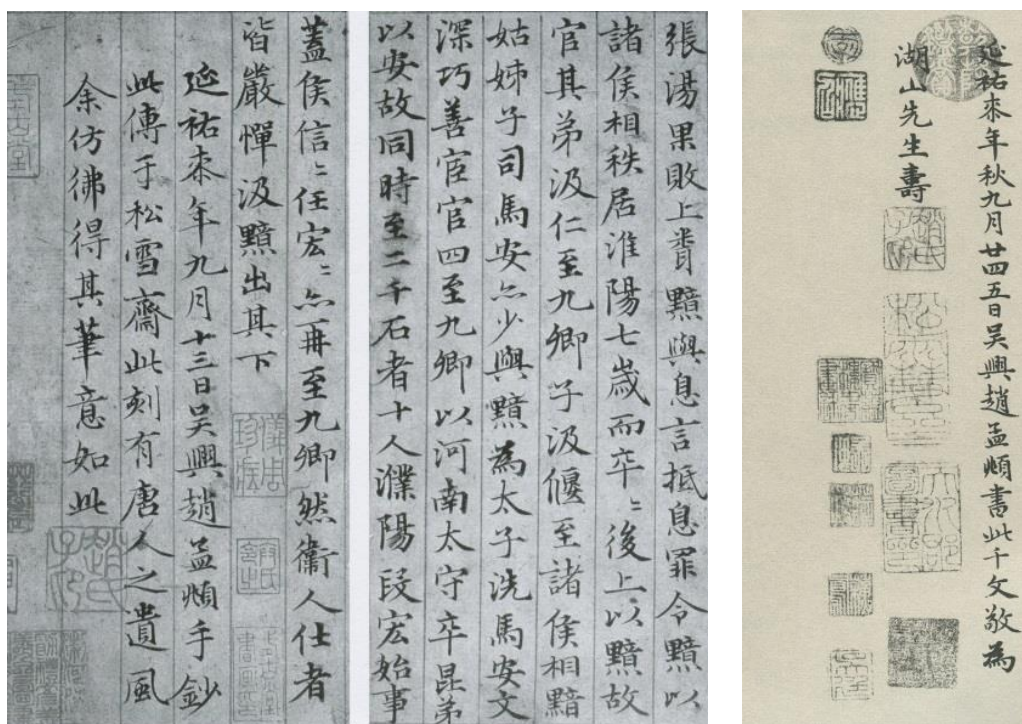 張湯果敗上聞黯與息言抵息罪令黯以
諸侯相秩居淮陽七歲而卒〻後上以黯故
官其弟汲仁至九卿子汲偃至諸侯相黯
姑姊子司馬安亦少與黯為太子洗馬安文
深巧善宦官四至九卿以河南太守卒昆弟
以安故同時至二千石者十人濮陽段宏始事
蓋侯信〻任宏〻亦再至九卿然衛人仕者
皆嚴憚汲黯出其下
延祐柒年九月十三日吳興趙孟頫手鈔
此傳于松雪齋此刻有唐人之遺風
余仿彿得其筆意如此
趙氏子昂
延祐柒年秋九月廿四五日吳興趙孟頫書此千文敬為
湖山先生壽
趙氏子昂
天水郡圖書印